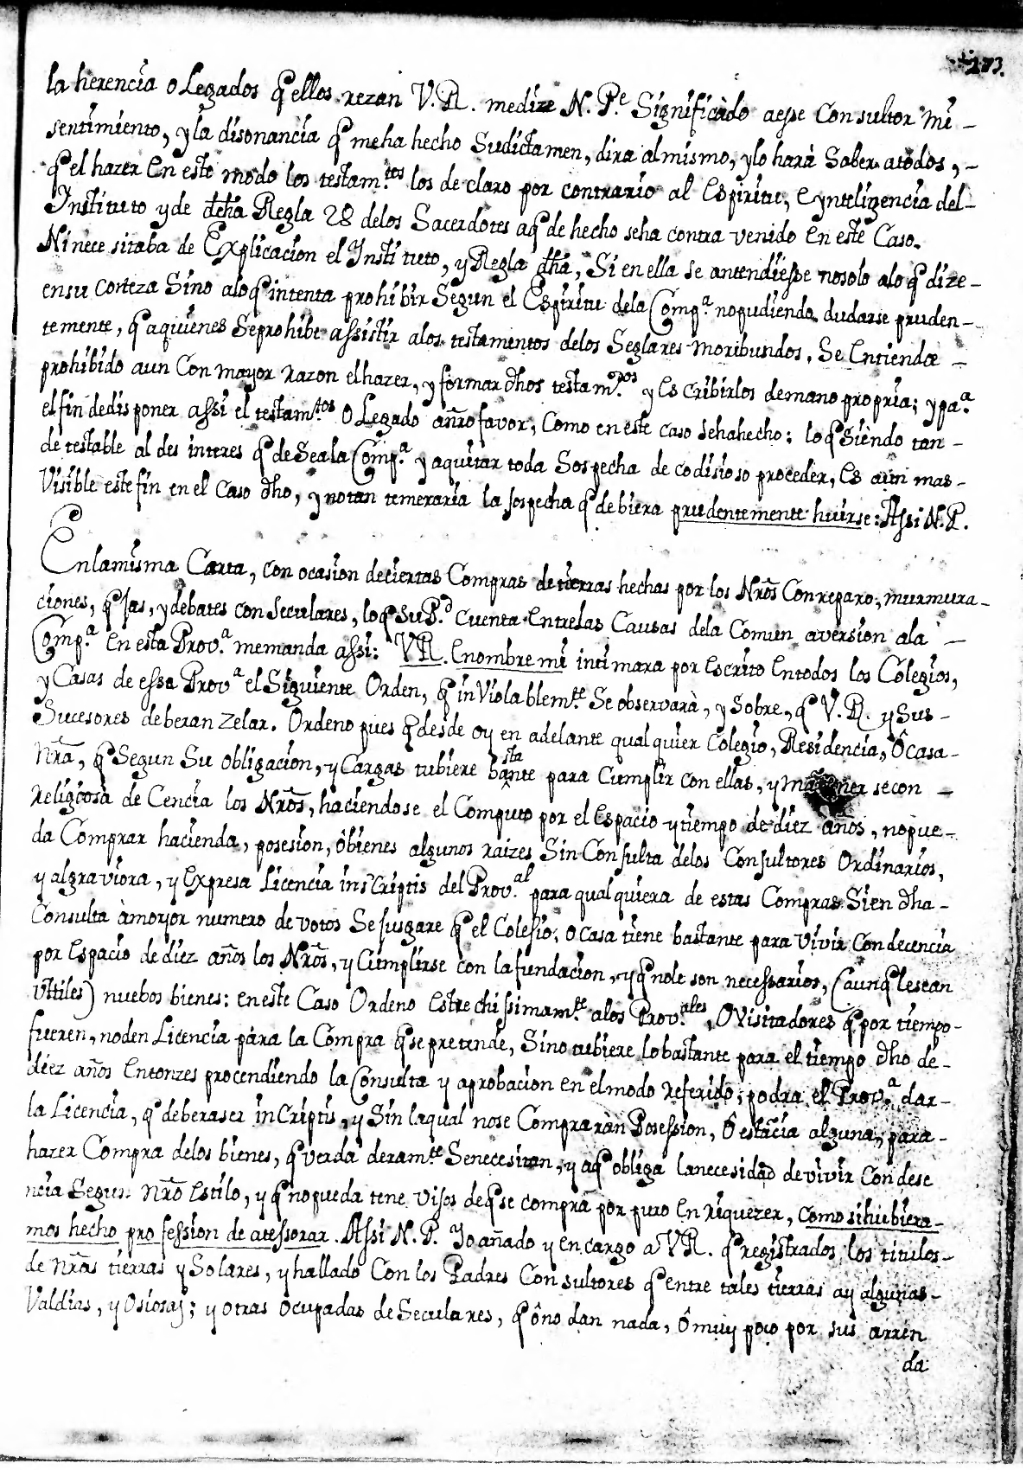 273.
la herencia o Legados q̃ ellos rezan V.R. me dize N. Pe. Significàdo aesse Consultor mi -
sentimiento, y la disonancia q̃ meha hecho Sudictamen, dira almismo, y lo harà Saber atodos, -
q̃ el hazer En este modo los testam.tos los declaro por contrario al Espiritu, E ynteligencia del -
Instituto y de dha Regla 28 delos Sacerdotes aq̃ de hecho seha contra venido En este Caso.
Ni nece sitaba de Explicacion el Insti tuto, y Regla dha, Si en ella se antendiesse nosolo alo q̃ dize -
ensu Corteza Sino alo q̃ intenta prohibir Segun el Espiritu dela Comp.a nopudiendo dudarse pruden -
temente, q̃ aquienes Seprohibe assistir alos testamentos delos Seglares Moribundos, Se Entiende -
prohibido aun Con mayor razon el hazer, y formar dhos testam.tos y Es Cribirlos demano propria; y pa.a
el fin dedisponer assi el testam.tos O Legado añro favor, Como en este caso sehahecho: lo q̃ Sièndo tan -
de testable al des interes q̃ de Seala Comp.a y aquitar toda Sospecha de codisioso proceder, Es aun mas -
Visible este fin en el Caso dho, y notan temeraria la sospecha q̃ debiera prudentemente huirse: Assi N.P.
Enlamisma Carta, con ocasion deciertas Compras detierras hechas por los Nrõs Conreparo, murmura -
ciones, q̃ jas, y debates con Seculares, lo q̃ Su P.d Cuenta Entrelas Causas dela Comun aversion ala -
Comp.a En esta Prov.a memanda assi: V.R. Enombre mi intimara por Escrito Entodos los Colegios,
y Casas de essa Prov.a el Siguiente Orden, q̃ inViolablem.te Se observarà, y Sobre, q̃ V.R. y Sus -
Sucesores deberan Zelar. Ordeno pues q̃ desde oy en adelante qualquier Colegio, Residencia, Ô casa -
Nrã, q̃ Segun Su obligacion, y Cargas tubiere bastante para Cumplir con ellas, y secon -
Religiosa de Cencia los Nrõs, haciendose el Computo por el Espacio y tiempo de diez años, nopue -
da Comprar hacienda, posesion, ôbienes algunos raizes Sin Consulta delos Consultores Ordinarios,
y algraviora, y Expresa Licencia ins Criptis del Prov.al para qualquiera de estas Compras Sien dha -
Consulta àmayor numero de votos Se jusgare q̃ el Colesio, o casa tiene bastante para vivir Con decencia
por Espacio de diez años los Nrõs, y Cumplirse con la fundacion, y q̃ nole son necessarios, (aunq̃ lesean
Vttiles) nuebos bienes: en este Caso Ordeno Estrechissimam.te alos Prov.ales, O Visitadores q̃ por tiempo -
fueren, noden Licencia para la Compra q̃ se pretende, Sino tubiere lo bastante para el tiempo dho de -
diez años Entonzes procendiendo la Consulta y aprobacion en elmodo referido; podra el Prov.a dar -
la Licencia, q̃ deberaser inCriptis, y Sin laqual nose Compraràn Posession, Ô estãcia alguna, para -
hazer Compra delos bienes, q̃ verda deram.te Senecesitan, y aq̃ obliga lanecesidad devivir Condese
ncia Segun Nrõ Estilo, y q̃ nopueda tene visos deq̃ se comprã por puro Enriquezer, como sihubiera -
mos hecho profession de atessorar. Assi N.P. Yo añado y encargo a V.R. q̃ registrados los titulos -
de Nrãs tierras y Solares, y hallado Con los Padres Consultores q̃ entre tales tierras ay algunas -
Valdias, y Osiosas; y otras Ocupadas de Seculares, q̃ ôno dan nada, ô muy poco por sus arren
da